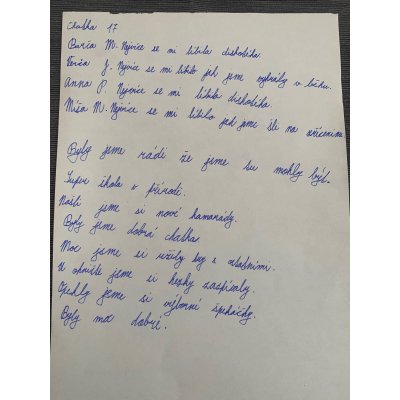 Chatka 17
Barča M. Nejvíce se mi líbila diskotéka.
Terča J. Nejvíce se mi líbilo jak jsme vyhrály v běhu.
Anna P. Nejvíce se mi líbila diskotéka.
Míša M. Nejvíce se mi líbilo jak jsme šli na zříceninu.
Byly jsme rádi že jsme tu mohly být.
Super škola v přírodě.
Našli jsme si nové kamarády.
Byly jsme dobrá chatka.
Moc jsme si užily hry s ostatními.
U ohniště jsme si hezky zazpívaly.
Opekly jsme si výborné špekáčky.
Byly moc dobré.